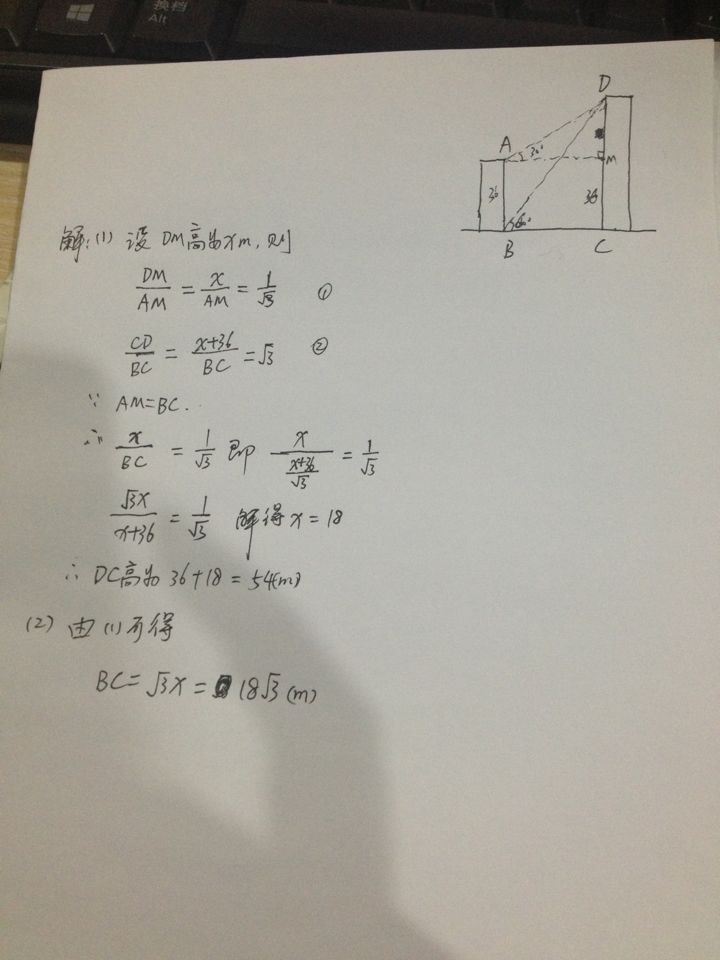 换档
Alt
D
A
30°
M
36
36
60°
B
C
解:(1) 设 DM高为xm,则
DM/AM = x/AM = 1/√3 ①
CD/BC = x+36/BC = √3 ②
∵ AM=BC.
∴ x/BC = 1/√3 即 x/(x+36/√3) = 1/√3
√3x/x+36 = 1/√3 解得x=18
∴ DC高为 36+18=54(m)
(2) 由(1)可得
BC=√3x= 18√3 (m)